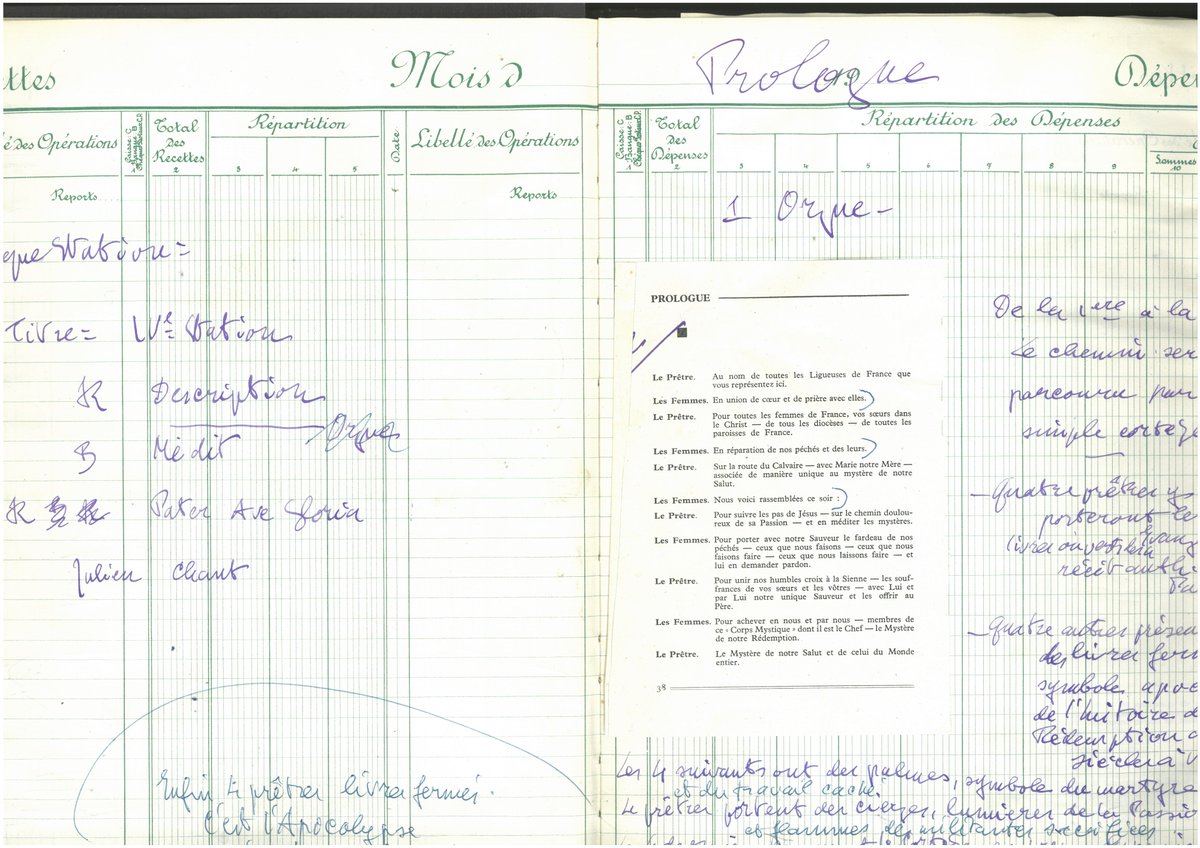 ttes
Mois d
é des Opérations
Total
des
Recettes
2
Répartition
3
4
5
Date
Libellé des Opérations
Reports
Reports
que Station =
Livre = IVe Station
R Description
Orgue
B Médit
R Pater Ave Gloria
Julien Chant
Enfin 4 prêtres livres fermés.
C'est l'Apocalypse
Prologue
19
Dépe
Total
des
Dépenses
2
Répartition des Dépenses
3
4
5
6
7
8
9
Sommes
10
1 Orgue -
PROLOGUE
Le Prêtre. Au nom de toutes les Ligueuses de France que
vous représentez ici.
Les Femmes. En union de cœur et de prière avec elles.
Le Prêtre. Pour toutes les femmes de France, vos sœurs dans
le Christ — de tous les diocèses — de toutes les
paroisses de France.
Les Femmes. En réparation de nos péchés et des leurs.
Le Prêtre. Sur la route du Calvaire — avec Marie notre Mère —
associée de manière unique au mystère de notre
Salut.
Les Femmes. Nous voici rassemblées ce soir :
Le Prêtre. Pour suivre les pas de Jésus — sur le chemin doulou-
reux de sa Passion — et en méditer les mystères.
Les Femmes. Pour porter avec notre Sauveur le fardeau de nos
péchés — ceux que nous faisons — ceux que nous
faisons faire — ceux que nous laissons faire — et
lui en demander pardon.
Le Prêtre. Pour unir nos humbles croix à la Sienne — les souf-
frances de vos sœurs et les vôtres — avec Lui et
par Lui notre unique Sauveur et les offrir au
Père.
Les Femmes. Pour achever en nous et par nous — membres de
ce « Corps Mystique » dont il est le Chef — le Mystère
de notre Rédemption.
Le Prêtre. Le Mystère de notre Salut et de celui du Monde
entier.
38
De la 1ere à la
le chemin ser
parcouru par
simple cortèg
- Quatre prêtres y
porteront le
livre où est
récit auth
- Quatre autres prése
des livres ferm
symbole apoc
de l'histoire d
Rédemption
siècles à
Les 4 suivants ont des palmes, symbole du martyre
et du travail caché
4 prêtres portent des cierges, lumières de la Passio
et flammes des militantes sacrifiées